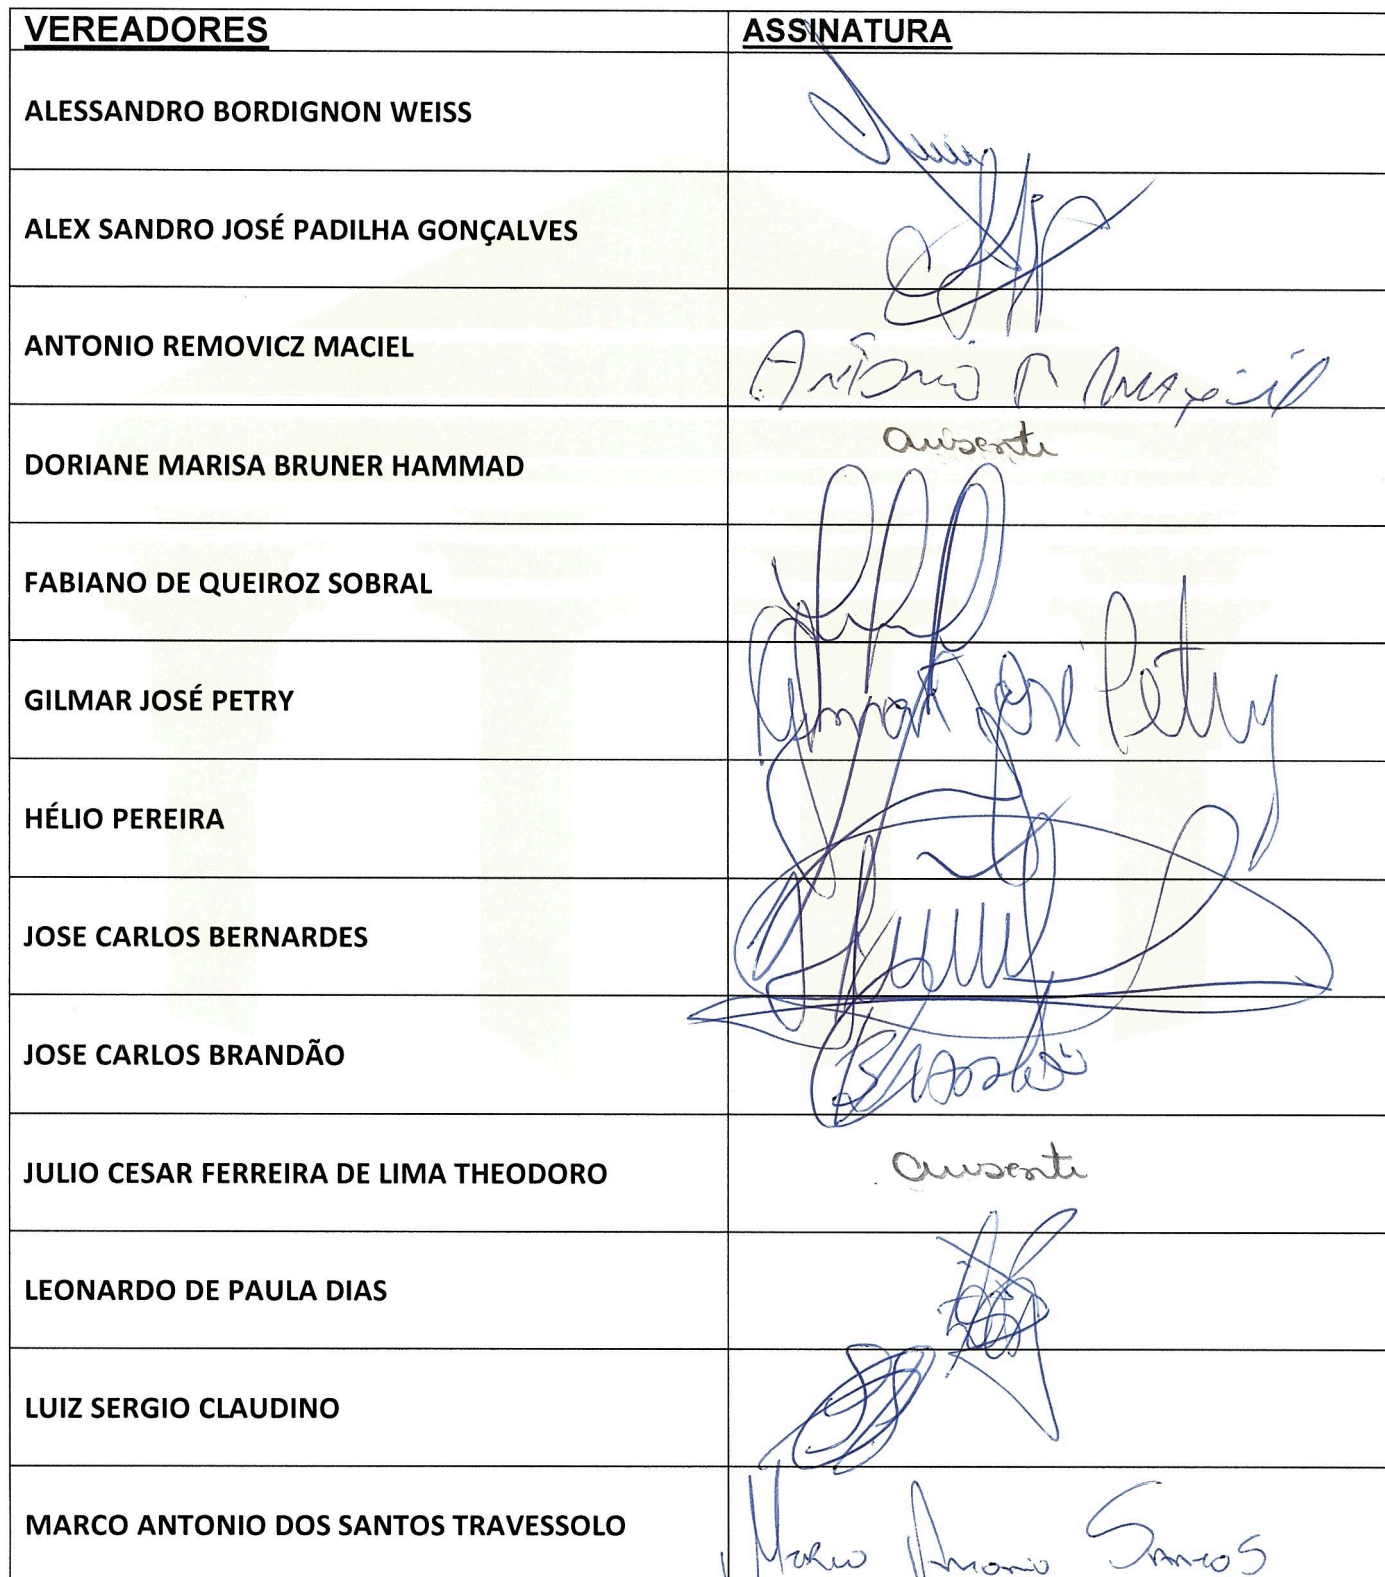 VEREADORES ASSINATURA
ALESSANDRO BORDIGNON WEISS
ALEX SANDRO JOSÉ PADILHA GONÇALVES
ANTONIO REMOVICZ MACIEL Antônio R Maciel
DORIANE MARISA BRUNER HAMMAD ausente
FABIANO DE QUEIROZ SOBRAL
GILMAR JOSÉ PETRY Gilmar José Petry
HÉLIO PEREIRA
JOSE CARLOS BERNARDES
JOSE CARLOS BRANDÃO Brandão
JULIO CESAR FERREIRA DE LIMA THEODORO ausente
LEONARDO DE PAULA DIAS
LUIZ SERGIO CLAUDINO
MARCO ANTONIO DOS SANTOS TRAVESSOLO Marco Antonio Santos